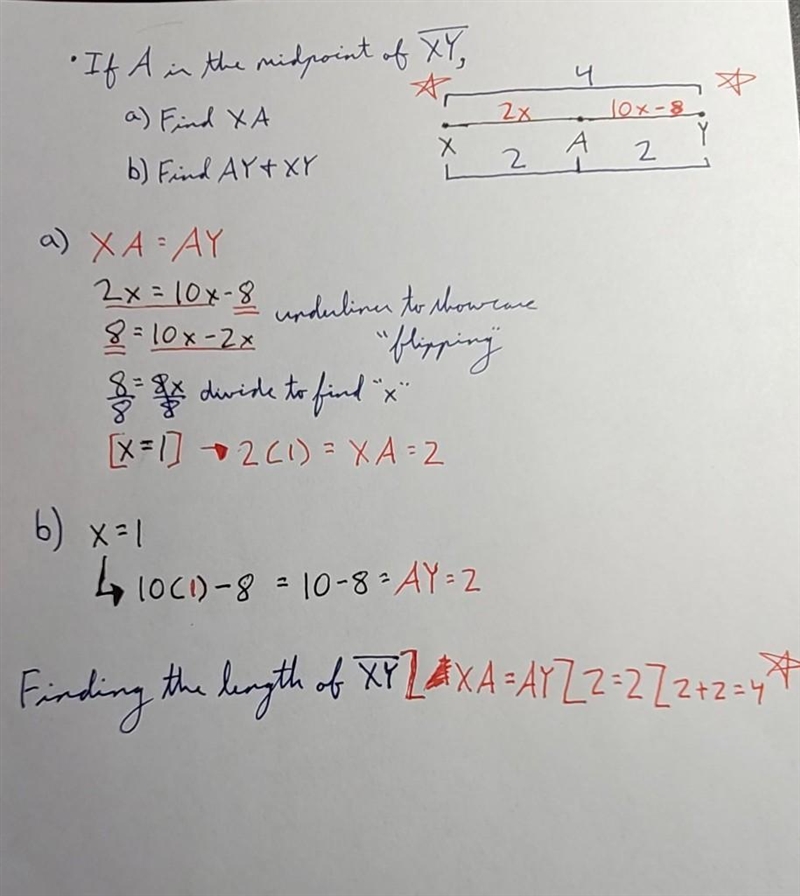 • If A is the midpoint of XY,
a) Find XA
b) Find AY + XY
4
2x 10x-8
X A Y
2 2
a) XA = AY
2x = 10x - 8
8 = 10x - 2x
underlines to showcase
"flipping"
8/8 = 8x/8 divide to find "x"
[x = 1] → 2(1) = XA = 2
b) x = 1
↳ 10(1) - 8 = 10 - 8 = AY = 2
Finding the length of XY] XA = AY [ 2 = 2 [ 2 + 2 = 4